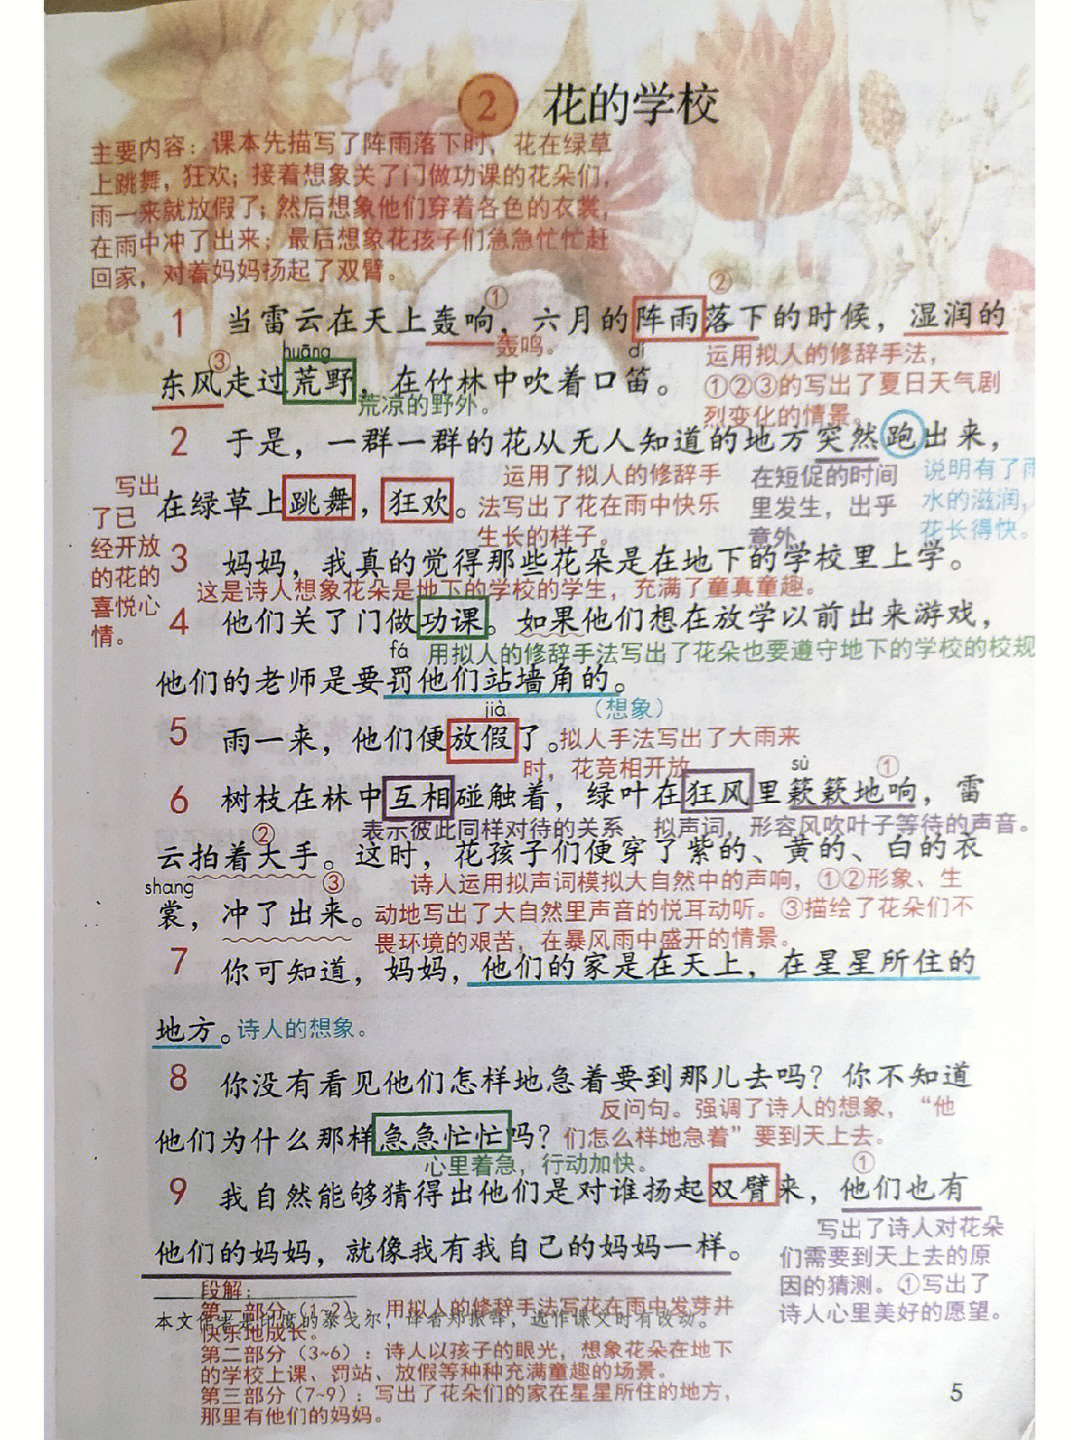 2 花的学校
主要内容：课本先描写了阵雨落下时，花在绿草
上跳舞，狂欢；接着想象关了门做功课的花朵们，
雨一来就放假了；然后想象他们穿着各色的衣裳，
在雨中冲了出来；最后想象花孩子们急急忙忙赶
回家，对着妈妈扬起了双臂。
① ②
1 当雷云在天上轰响，六月的阵雨落下的时候，湿润的
轰鸣。
③ huāng dí
运用拟人的修辞手法，
东风走过荒野，在竹林中吹着口笛。
①②③的写出了夏日天气剧
荒凉的野外。
烈变化的情景。
2 于是，一群一群的花从无人知道的地方突然跑出来，
运用了拟人的修辞手
在短促的时间
说明有了雨
写出
在绿草上跳舞，狂欢。
法写出了花在雨中快乐
里发生，出乎
水的滋润，
了已
生长的样子。
意外
花长得快。
经开放
3 妈妈，我真的觉得那些花朵是在地下的学校里上学。
的花的
这是诗人想象花朵是地下的学校的学生，充满了童真童趣。
喜悦心
4 他们关了门做功课。如果他们想在放学以前出来游戏，
情。
fá
用拟人的修辞手法写出了花朵也要遵守地下的学校的校规
他们的老师是要罚他们站墙角的。
jià
（想象）
5 雨一来，他们便放假了。
拟人手法写出了大雨来
时，花竞相开放
sù ①
6 树枝在林中互相碰触着，绿叶在狂风里簌簌地响，雷
表示彼此同样对待的关系
拟声词，形容风吹叶子等待的声音。
②
云拍着大手。这时，花孩子们便穿了紫的、黄的、白的衣
shang ③
诗人运用拟声词模拟大自然中的声响，①②形象、生
裳，冲了出来。
动地写出了大自然里声音的悦耳动听。③描绘了花朵们不
畏环境的艰苦，在暴风雨中盛开的情景。
7 你可知道，妈妈，他们的家是在天上，在星星所住的
地方。
诗人的想象。
8 你没有看见他们怎样地急着要到那儿去吗？你不知道
反问句。强调了诗人的想象，“他
他们为什么那样急急忙忙吗？
们怎么样地急着”要到天上去。
心里着急，行动加快。
①
9 我自然能够猜得出他们是对谁扬起双臂来，他们也有
写出了诗人对花朵
他们的妈妈，就像我有我自己的妈妈一样。
们需要到天上去的原
因的猜测。①写出了
诗人心里美好的愿望。
段解：
第一部分（1~2）：用拟人的修辞手法写花在雨中发芽并
本文作者是印度的泰戈尔，译者郑振铎，选作课文时有改动。
快乐地成长。
第二部分（3~6）：诗人以孩子的眼光，想象花朵在地下
的学校上课、罚站、放假等种种充满童趣的场景。
第三部分（7~9）：写出了花朵们的家在星星所住的地方，
那里有他们的妈妈。
5